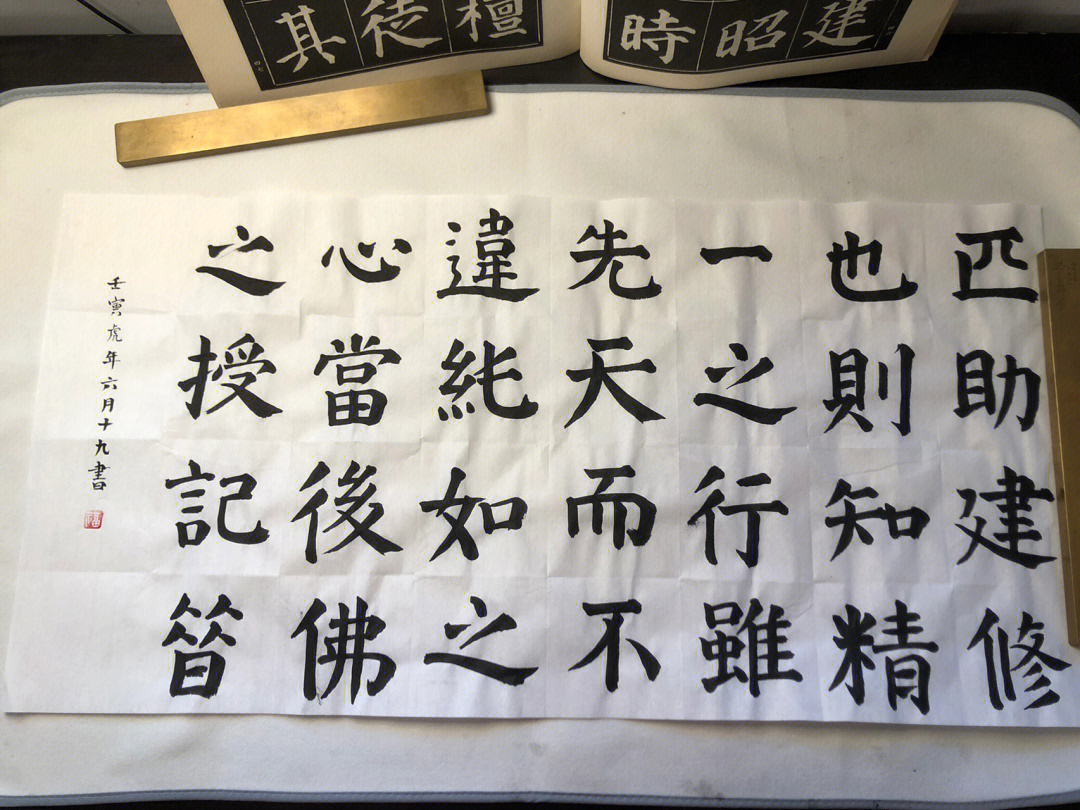 建
昭
時
檀
徒
其
匹助建修
也則知精
一之行雖
先天而不
違純如之
心當後佛
之授記昔
壬寅虎年六月十九書
福